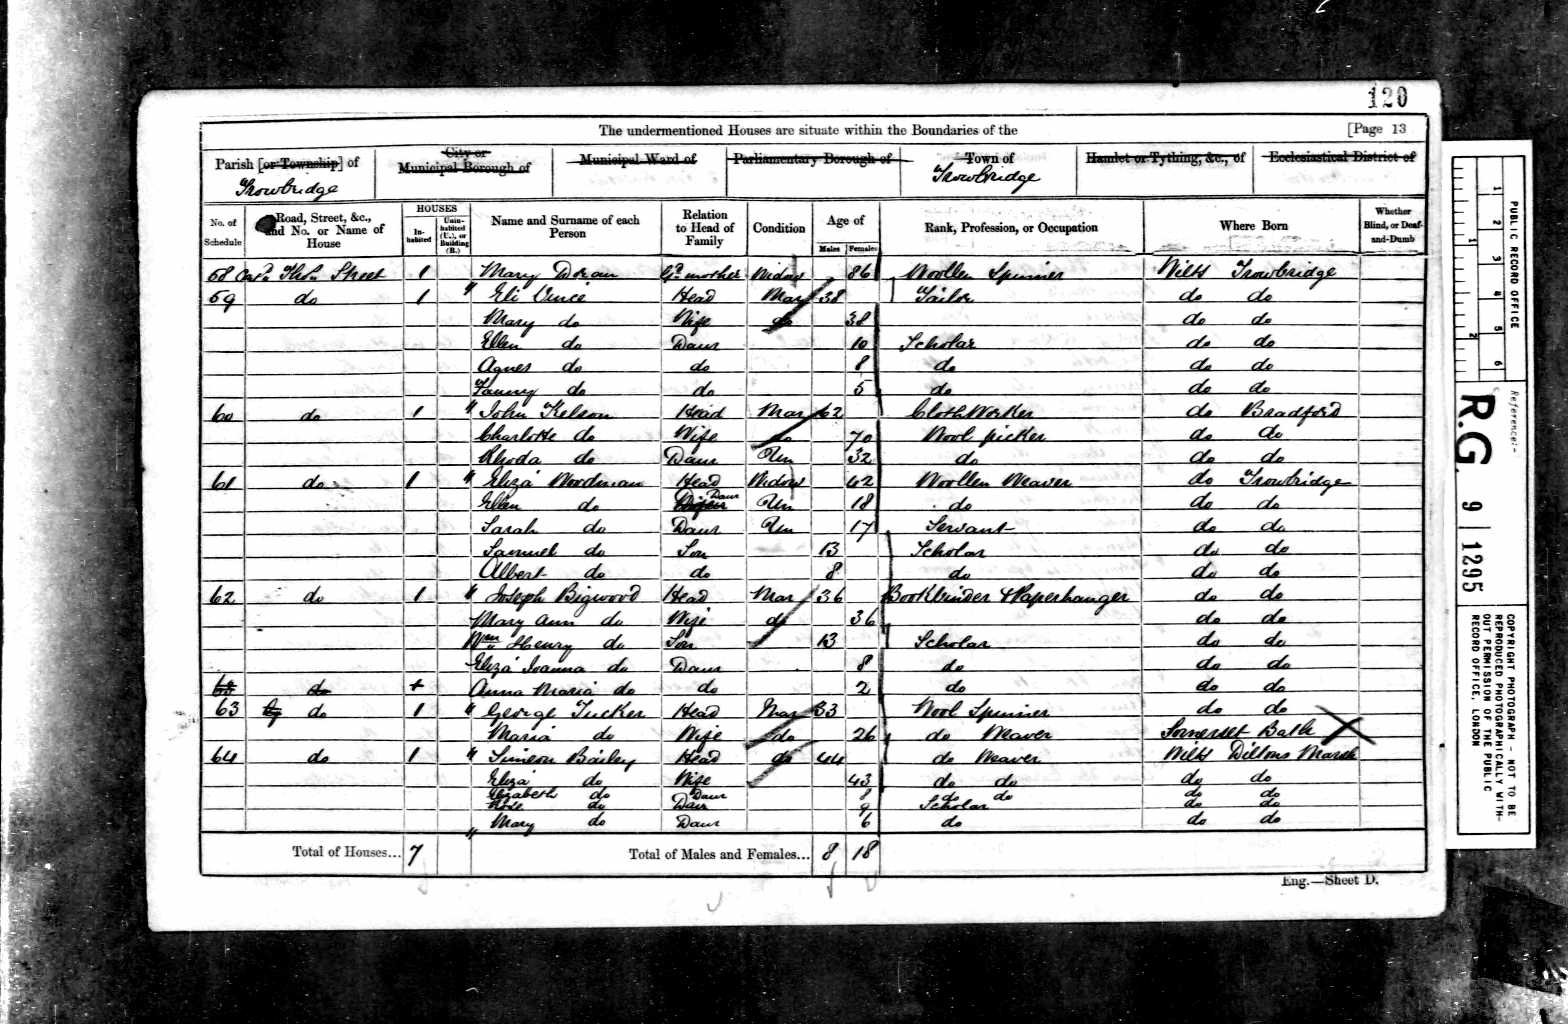 120
The undermentioned Houses are situate within the Boundaries of the [Page 13
Parish [or Township] of Trowbridge City or Municipal Borough of Municipal Ward of Parliamentary Borough of Town of Trowbridge Hamlet or Tything, &c., of Ecclesiastical District of
No. of Schedule Road, Street, &c., and No. or Name of House HOUSES Inhabited Uninhabited (U.), or Building (B.) Name and Surname of each Person Relation to Head of Family Condition Age of Males Females Rank, Profession, or Occupation Where Born Whether Blind, or Deaf-and-Dumb
58 Street 1 Mary Doran Gd mother Widow 86 Woollen Spinner Wilts Trowbridge
59 do 1 " Eli Vince Head Mar 38 Tailor do do
Mary do Wife do 38 do do
Ellen do Daur 10 Scholar do do
Agnes do do 8 do do do
Fanny do do 5 do do do
60 do 1 " John Kelson Head Mar 62 Cloth Worker do Bradford
Charlotte do Wife do 70 Wool picker do do
Rhoda do Daur Un 32 do do do
61 do 1 " Eliza Woodman Head Widow 42 Woollen Weaver do Trowbridge
Ellen do Daur Un 18 do do do
Sarah do Daur Un 17 Servant do do
Samuel do Son 13 Scholar do do
Albert do do 8 do do do
62 do 1 " Joseph Bigwood Head Mar 36 Bookbinder & Paperhanger do do
Mary Ann do Wife do 36 do do
Wm Henry do Son 13 Scholar do do
Eliza Joanna do Daur 8 do do do
63 do 1 Anna Maria do do 2 do do do
63 do 1 " George Tucker Head Mar 33 Wool Spinner do do
Maria do Wife do 26 do Weaver Somerset Bath
64 do 1 " Simeon Bailey Head do 44 do Weaver Wilts Diltons Marsh
Eliza do Wife 43 do do do do
Elizabeth do Daur 8 do do do do
Rose do Daur 9 Scholar do do
" Mary do Daur 6 do do do
Total of Houses... 7 Total of Males and Females... 8 18
Eng.—Sheet D.
PUBLIC RECORD OFFICE
1 2 3 4 5 6
1 2
Reference:-
R.G. 9 1295
COPYRIGHT PHOTOGRAPH - NOT TO BE
REPRODUCED PHOTOGRAPHICALLY WITH-
OUT PERMISSION OF THE PUBLIC
RECORD OFFICE, LONDON